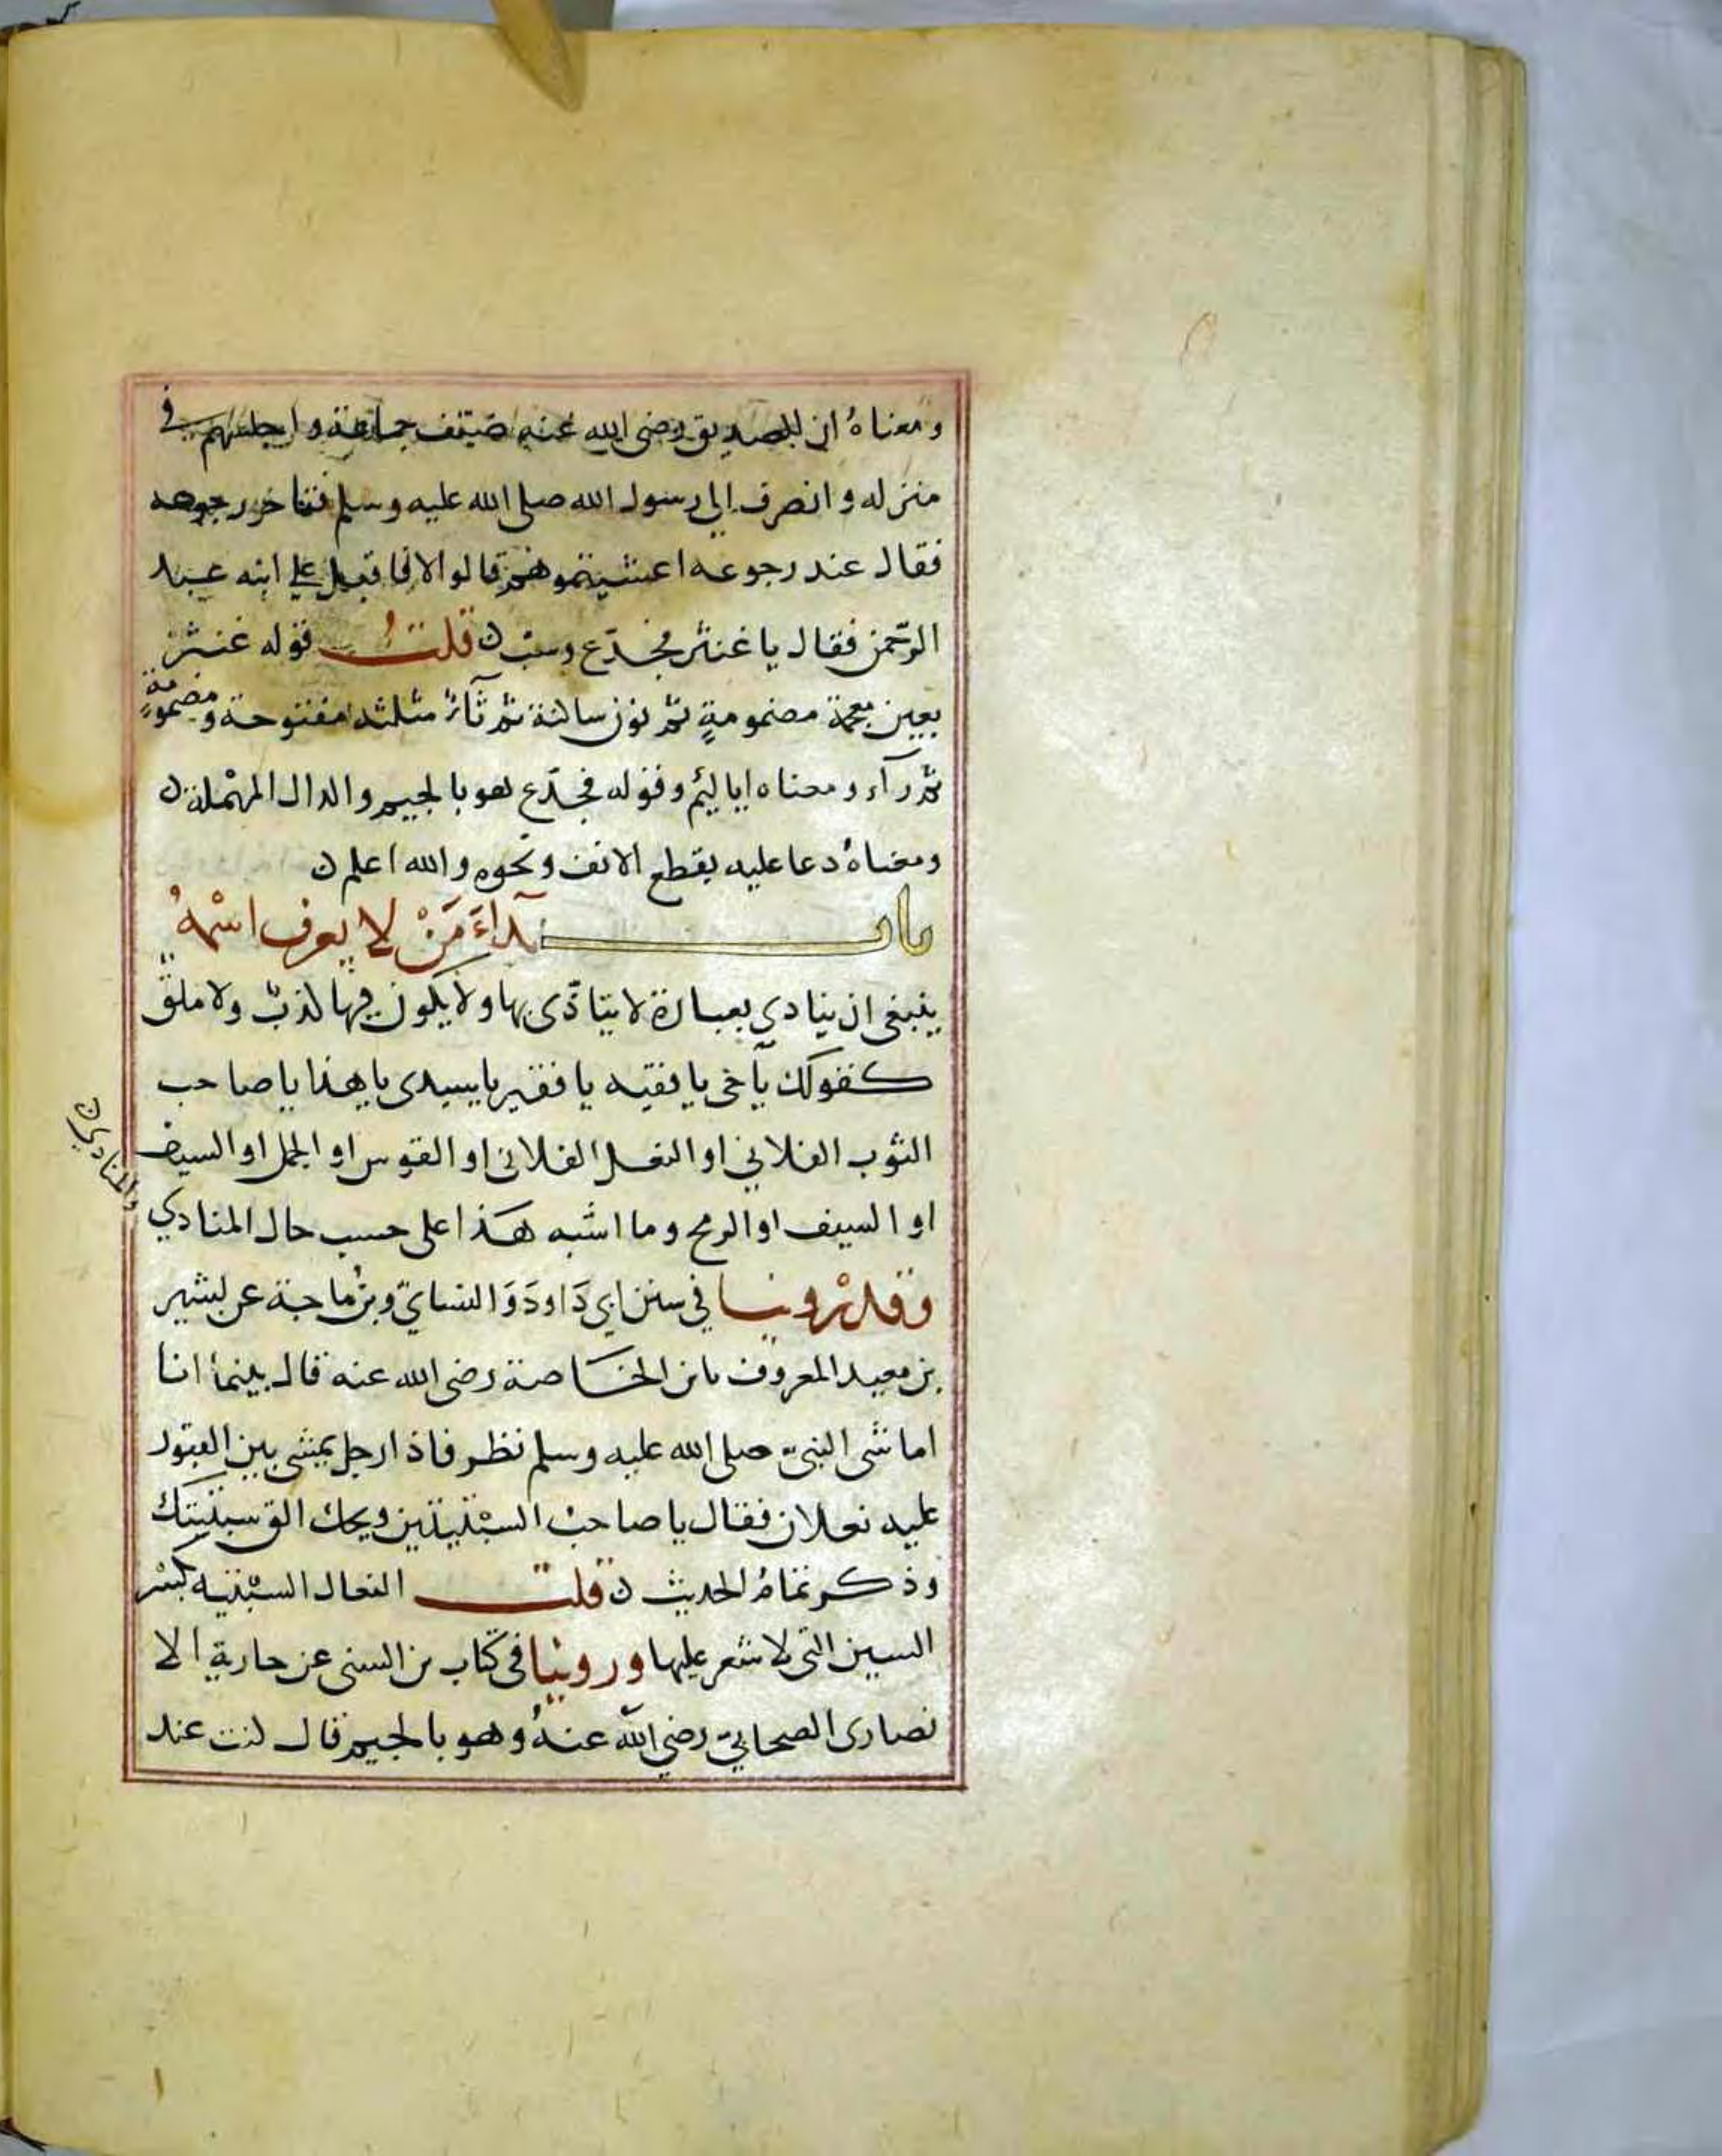 ومعناه ان الصديق رضي الله عنه ضيف جماعة واجلسهم في
منزله وانصرف الي رسول الله صلى الله عليه وسلم فتاخر رجوعه
فقال عند رجوعه اعشيتموهم قالوا لا فاقبل علي ابنه عبد
الرحمن فقال يا غنثر فجدع وسب ن قلت قوله غنثر
بغين معجمة مضمومةٍ ثم نون ساكنة ثم ثاءٌ مثلثه مفتوحة ومضمومةٍ
ثم رآء ومعناه يا ليئم وقوله فجدّع هو بالجيم والدال المهملة ن
ومعناهُ دعا عليه بقطع الانف ونحوه والله اعلم ن
باب نداءَ مَنْ لا يعرف اسْمهُ
ينبغي ان ينادي بعبارة لا يتاذّى بها ولا يكون فيها كذبٌ ولا ملقٌ
كقولك يآخي يا فقيه يا فقير يا سيدى يا هذا يا صاحب
الثوب الفلاني او النعل الفلاني او القوس او الجمل او السيف
او السيف او الرمح وما اشبه هذا على حسب حال المنادي
والمنادي ن
وقدْ روينا في سنن ابي دَاودَ وَالنساي وبن ماجة عن بشير
بن معبد المعروف بابن الخصاصة رضي الله عنه قال بينما انا
اماشى النبي صلى الله عليه وسلم نظر فاذا رجل يمشي بين القبور
عليه نعلان فقال يا صاحب السبْتيتين ويحك الق سبتيتك
وذكر تمامُ الحديث ن قلت النعال السبْتيه بكسْر
السين التي لا شعر عليها وروينا في كتاب بن السني عن جارية الا
نصارى الصحابيّ رضي الله عنهُ وهو بالجيم قال كنت عند